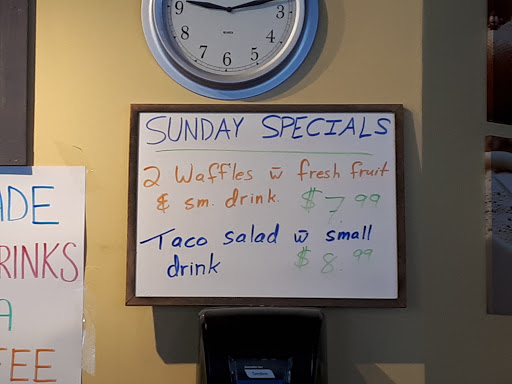 9
8
7
6
5
4
3
SUNDAY SPECIALS
2 Waffles w̄ fresh fruit
& sm. drink. $7.99
Taco salad w̄ small
drink $8.99
ADE
RINKS
A
FEE